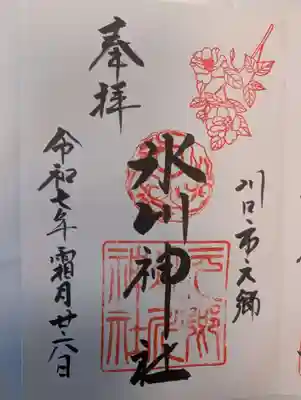 川口市元郷
奉拝
氷川神社
令和七年霜月廿八日